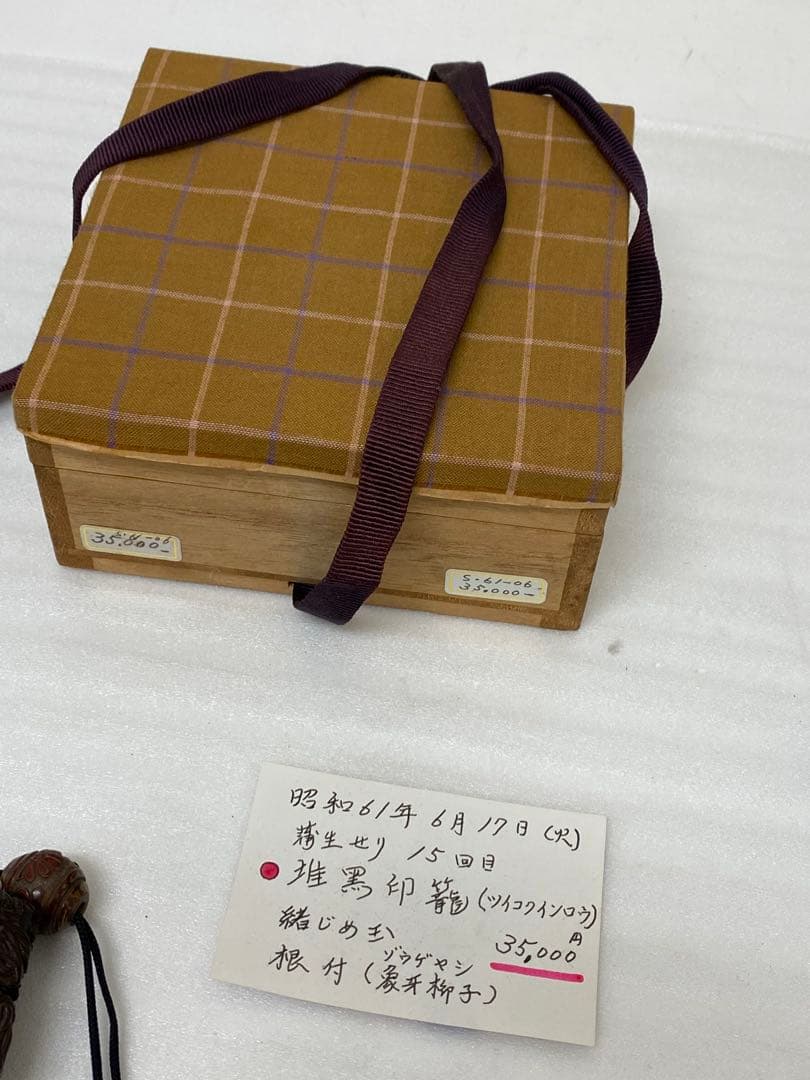 S-61-06
35.000-
S-61-06
35.000-
昭和61年6月17日(火)
蒲生せり 15回目
堆黒印籠(ツイコクインロウ)
緒じめ玉 35,000円
ゾウゲヤシ
根付(象牙椰子)